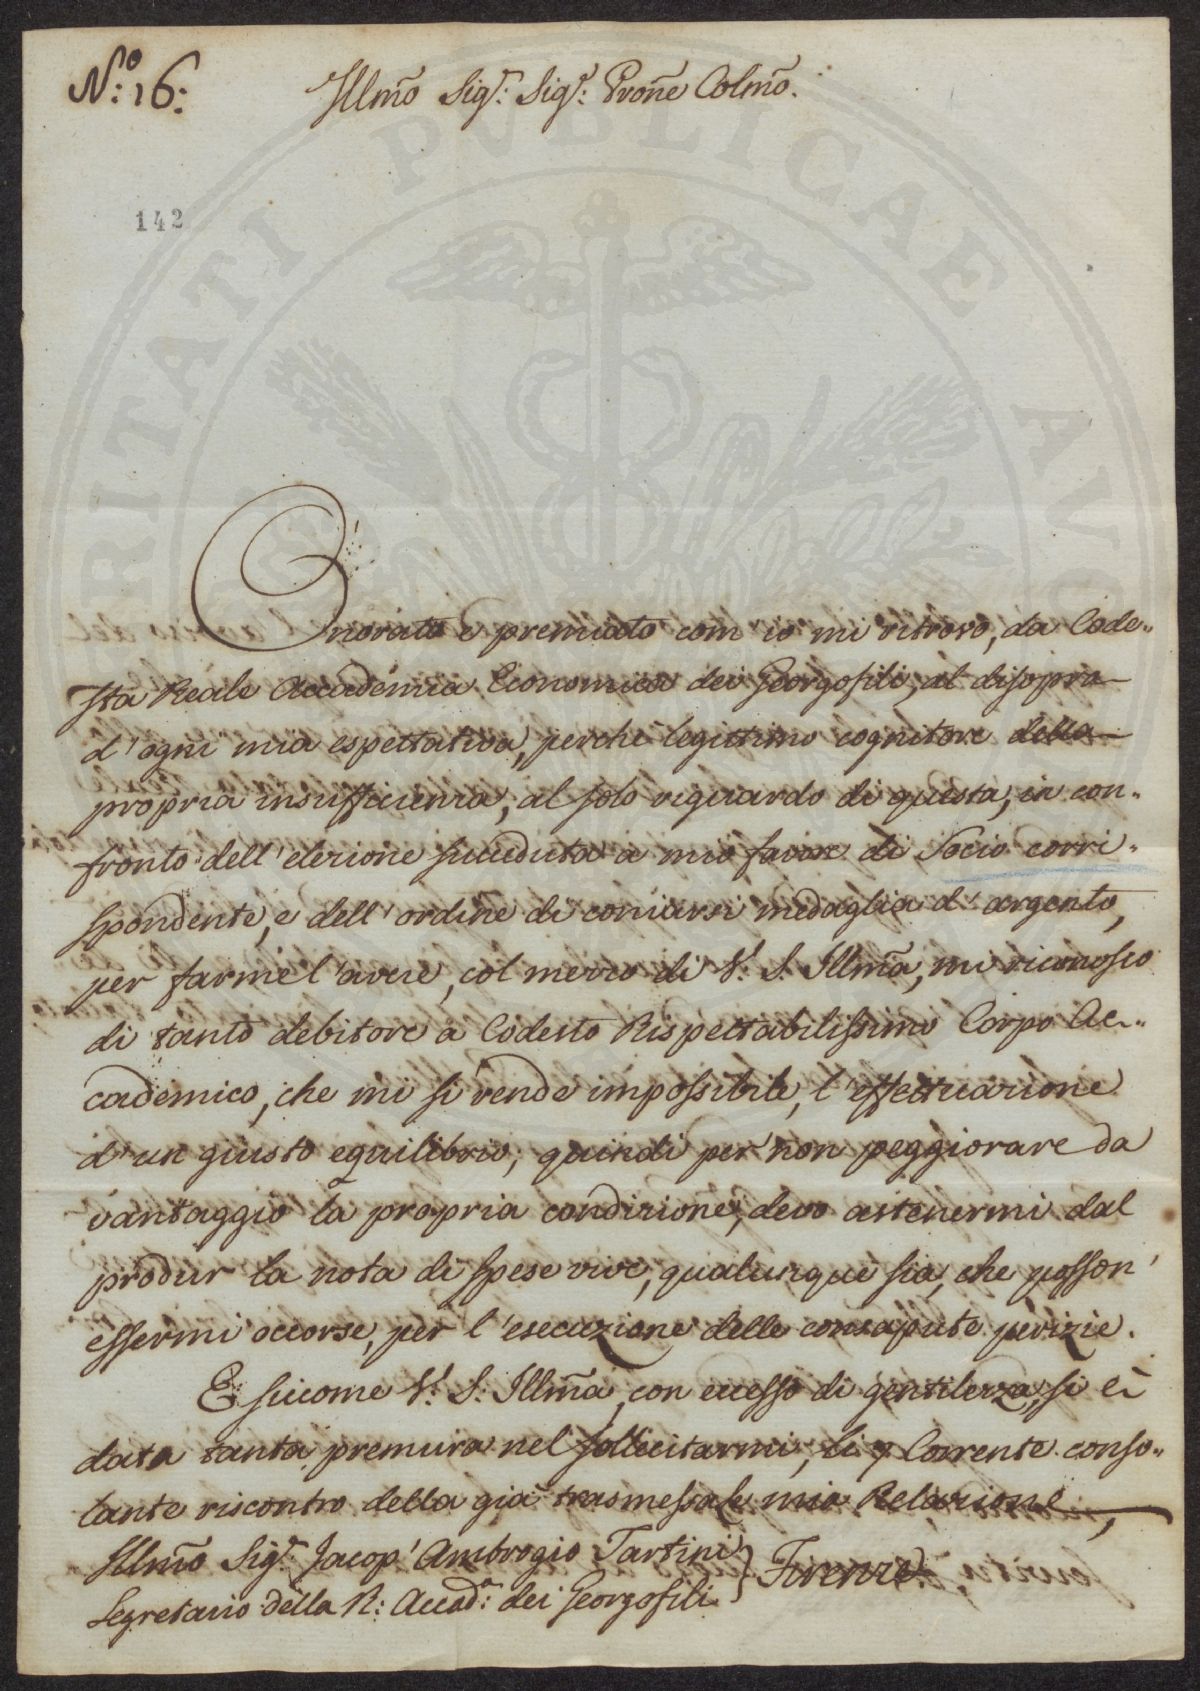 N.º 16:
Illmõ Sig.r: Sig.r: Proñe Colmõ.
142
PVBLICAE
RITATI
AVC
Onorato e premiato com' io mi ritrovo, da Code-
sta Reale Accademia Economica dei Georgofili, al disopra
d'ogni mia espettativa, perchè legittimo cognitore della
propria insufficienza, al solo riguardo di questa, in con-
fronto dell'elezione succeduta a mio favore di Socio corri-
spondente, e dell'ordine di coniarsi medaglia d'argento,
per farmel'avere, col merzo di V: S. Illmã, mi riconosco
di tanto debitore a Codesto Rispettabilissimo Corpo Ac-
cademico, che mi si rende impossibile, l'effettuazione
d'un giusto equilibrio; quindi per non peggiorare da
vantaggio la propria condizione, devo astenermi dal
produr la nota di spese vive, qualunque sia, che posson'
essermi occorse, per l'esecuzione delle consapute perizie.
E siccome V: S: Illmã, con eccesso di gentilezza, si è
data tanta premura nel sollecitarmi, li 7 Corrente conso-
lante riscontro della già trasmessale mia Relazione,
Illmõ Sig.r Jacop' Ambrogio Tartini
Segretario della R: Accad.a: dei Georgofili } Firenze